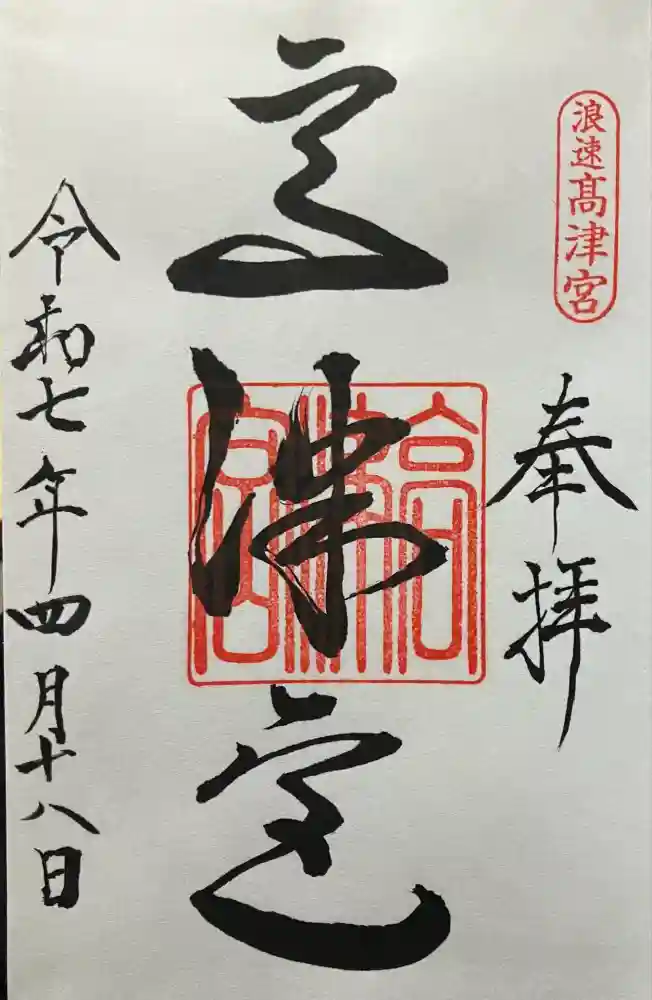 浪速髙津宮
奉拝
高津宮
高津宮
令和七年四月十八日